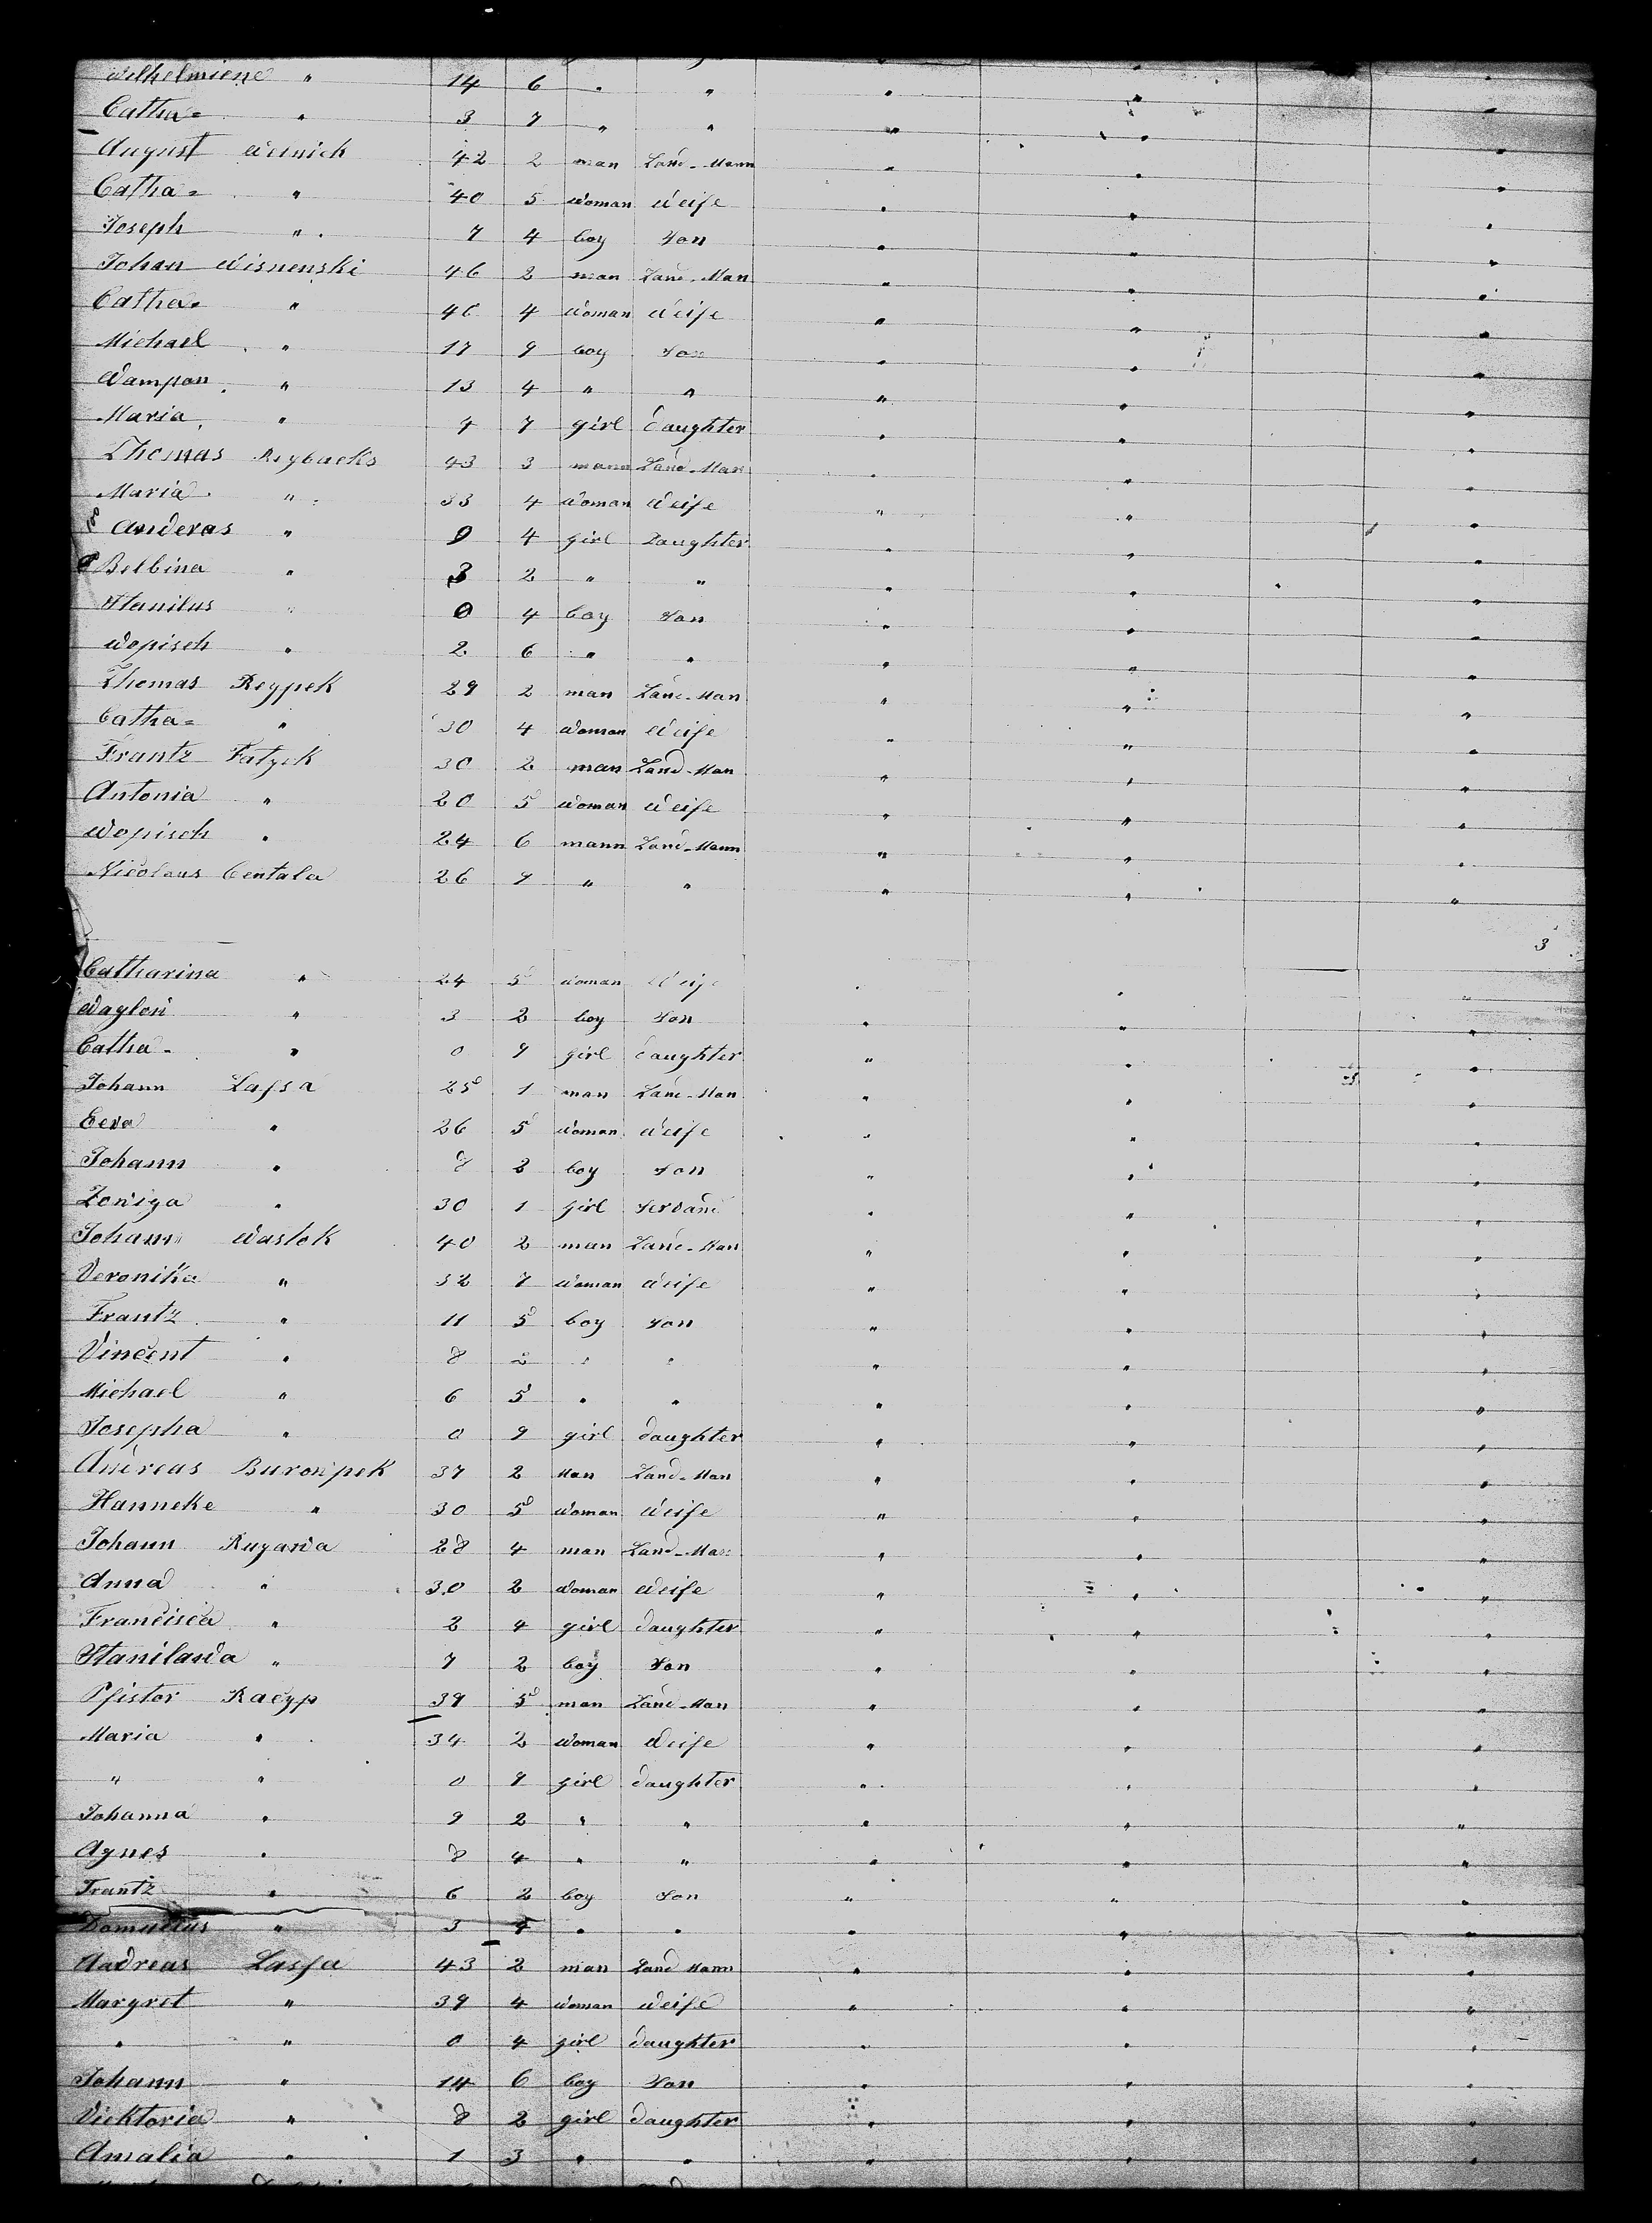 Wilhelmiene " 14 6 " " " " "
Catha= " 3 7 " " " " "
August Weinich 42 2 man Land-Mann " " "
Catha= " 40 5 Woman Weife " " "
Joseph " 7 4 boy Son " " "
Johan Wisnenski 46 2 man Land-Man " " "
Catha= " 46 4 Woman Weife " " "
Michael " 17 9 boy Son " " "
Wampon " 13 4 " " " " "
Maria " 4 7 girl daughter " " "
Thomas Reybacks 43 3 mann Land-Man " " "
Maria " 33 4 Woman Weife " " "
Anderas " 9 4 girl Daughter " " "
Belbina " 3 2 " " " " "
Stanilus " 0 4 boy Son " " "
Wopisch " 2 6 " " " " "
Thomas Reypek 29 2 man Land-Man " " "
Catha= " 30 4 Woman Weife " " "
Frantz Fatzek 30 2 man Land-Man " " "
Antonia " 20 5 Woman Weife " " "
Wopisch " 24 6 mann Land-Mann " " "
Nicolaus Centala 26 9 " " " " "
3
Catharina " 24 5 Woman Weife " " "
Waglow " 3 2 boy Son " " "
Catha- " 0 9 girl daughter " " "
Johann Lassa 25 1 man Land-Man " " "
Eeva " 26 5 Woman Weife " " "
Johann " 8 2 boy Son " " "
Zoniga " 30 1 girl Servand " " "
Johann Waslok 40 2 man Land-Man " " "
Veronika " 32 7 Woman Weife " " "
Frantz " 11 5 boy Son " " "
Vincent " 8 2 " " " " "
Michael " 6 5 " " " " "
Josepha " 0 9 girl daughter " " "
Andreas Buronpek 37 2 Man Land-Man " " "
Hanneke " 30 5 Woman Weife " " "
Johann Rugawa 28 4 man Land-Man " " "
Anna " 30 2 Woman Weife " " "
Francisca " 2 4 girl daughter " " "
Stanilawa " 7 2 boy Son " " "
Pfister Racyp 39 5 man Land-Man " " "
Maria " 34 2 Woman Weife " " "
" " 0 9 girl daughter " " "
Johanna " 9 2 " " " " "
Agnes " 8 4 " " " " "
Frantz " 6 2 boy Son " " "
Domucius " 3 4 " " " " "
Andreas Lassa 43 2 man Land Mann " " "
Margret " 39 4 Woman Weife " " "
" " 0 4 girl daughter " " "
Johann " 14 6 boy Son " " "
Vicktoria " 8 2 girl daughter " " "
Amalia " 1 3 " " " " "